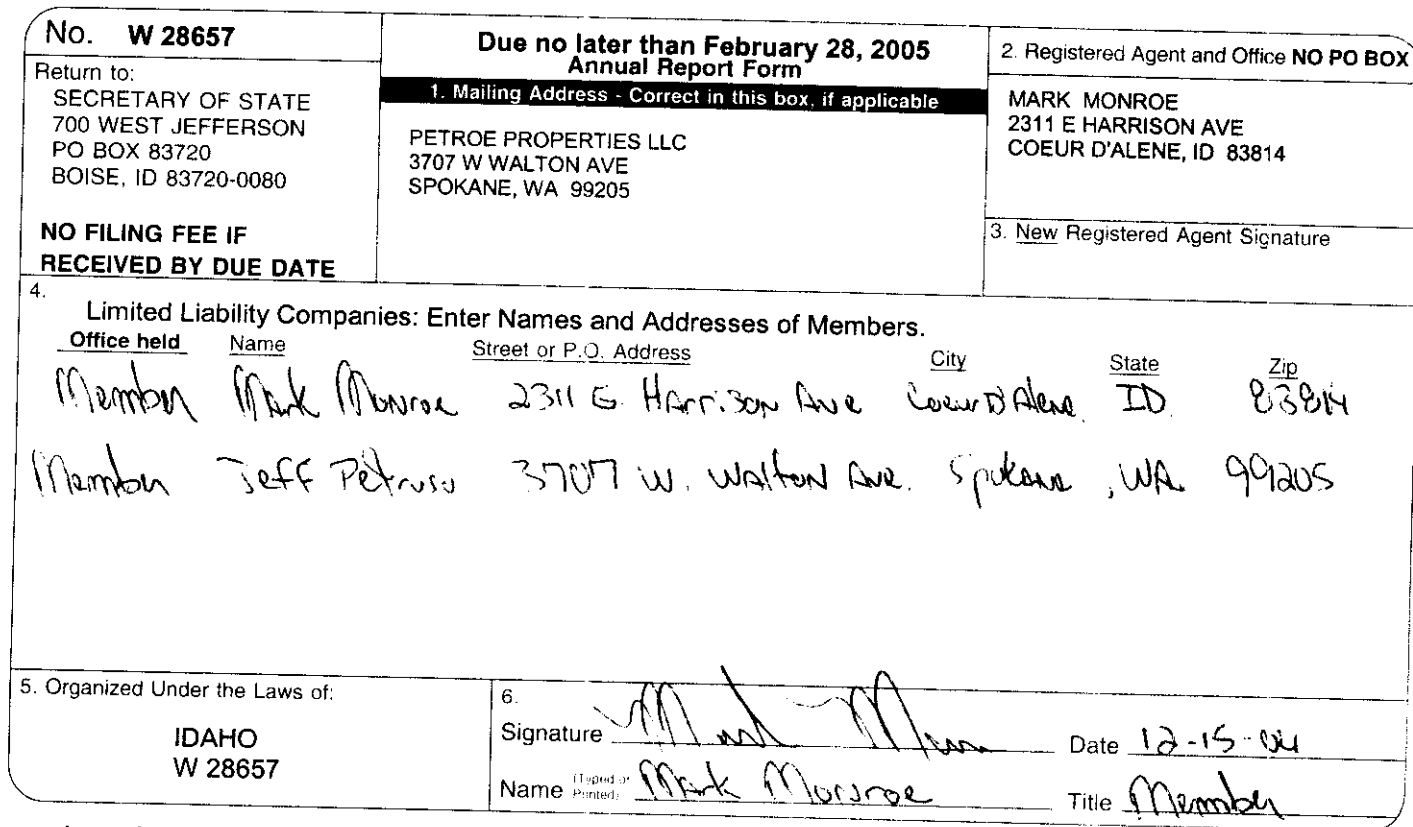 No. W 28657
Return to:
SECRETARY OF STATE
700 WEST JEFFERSON
PO BOX 83720
BOISE, ID 83720-0080
NO FILING FEE IF
RECEIVED BY DUE DATE
Due no later than February 28, 2005
Annual Report Form
1. Mailing Address - Correct in this box, if applicable
PETROE PROPERTIES LLC
3707 W WALTON AVE
SPOKANE, WA 99205
2. Registered Agent and Office NO PO BOX
MARK MONROE
2311 E HARRISON AVE
COEUR D'ALENE, ID 83814
3. New Registered Agent Signature
4.
Limited Liability Companies: Enter Names and Addresses of Members.
Office held Name Street or P.O. Address City State Zip
Member Mark Monroe 2311 E. Harrison Ave Coeur D'Alene ID 83814
Member Jeff Petruso 3707 W. Walton Ave. Spokane, WA 99205
5. Organized Under the Laws of:
IDAHO
W 28657
6.
Signature Mark Date 12-15-04
Name (Typed or Printed) Mark Monroe Title Member